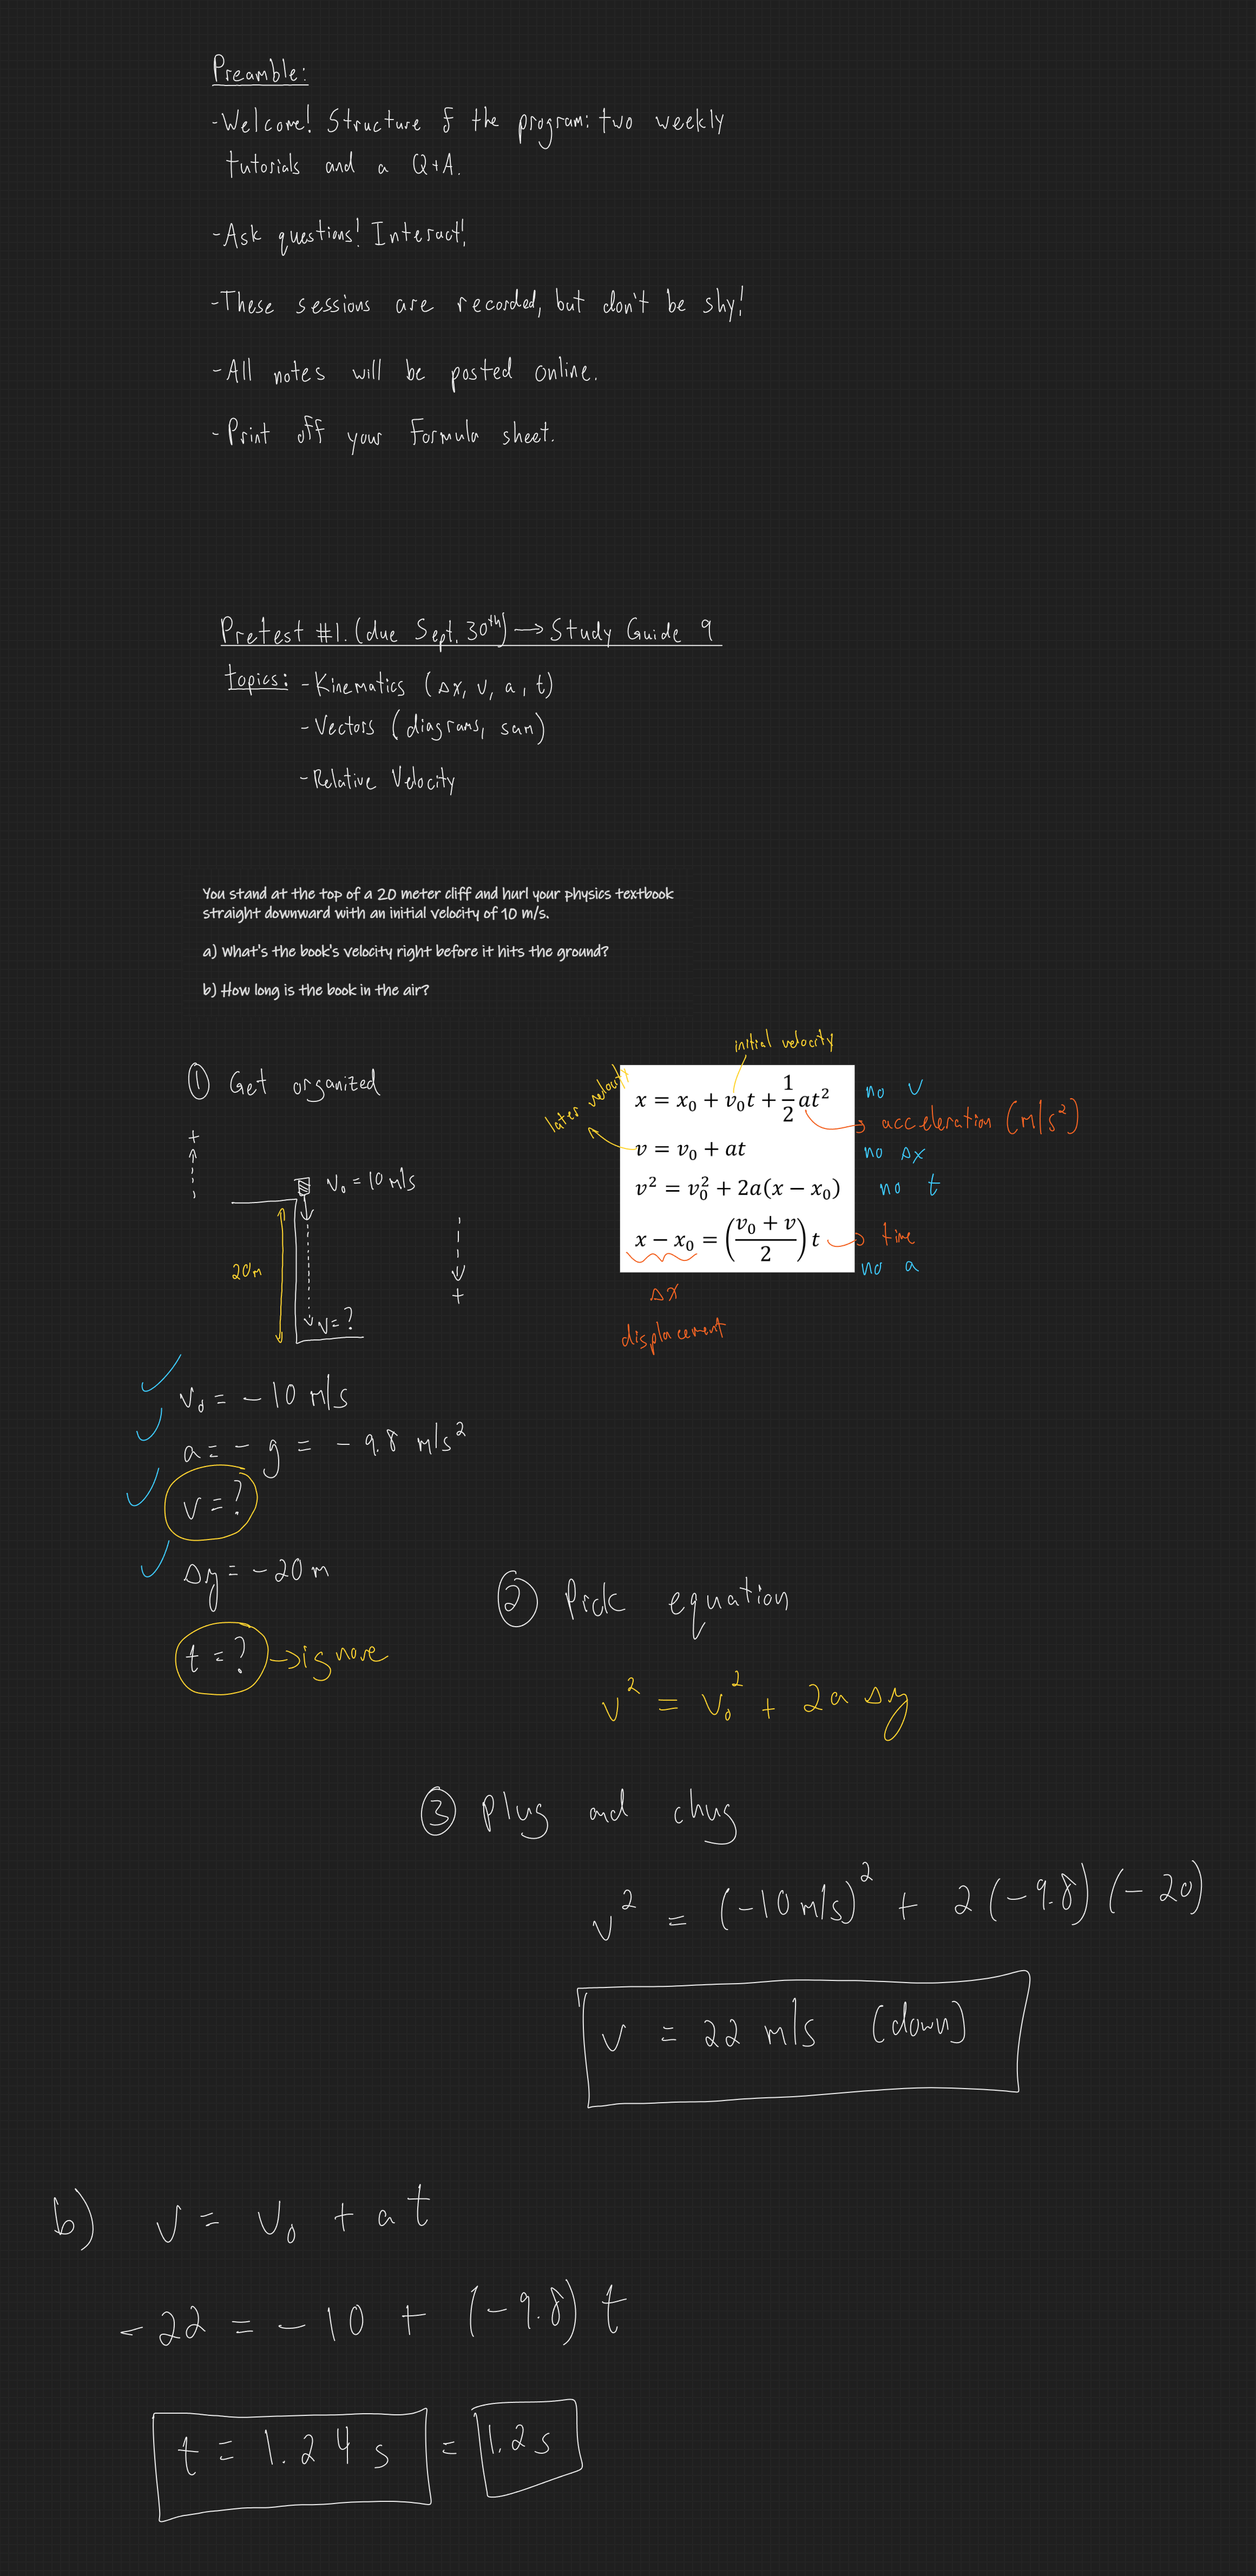 Preamble:
-Welcome! Structure of the program: two weekly
tutorials and a Q+A.
-Ask questions! Interact!
-These sessions are recorded, but don't be shy!
-All notes will be posted online.
-Print off your Formula sheet.
Pretest #1. (due Sept. 30th) → Study Guide 9
topics: -Kinematics (Δx, v, a, t)
-Vectors (diagrams, sum)
-Relative Velocity
You stand at the top of a 20 meter cliff and hurl your physics textbook
straight downward with an initial velocity of 10 m/s.
a) What's the book's velocity right before it hits the ground?
b) How long is the book in the air?
① Get organized
+
v₀ = 10 m/s
20m
v = ?
+
initial velocity
later velocity
x = x₀ + v₀t + 1/2 at²
no v
acceleration (m/s²)
v = v₀ + at
no Δx
v² = v₀² + 2a(x − x₀)
no t
x − x₀ = ((v₀ + v)/2) t
time
no a
Δx
displacement
v₀ = − 10 m/s
a = − g = − 9.8 m/s²
v = ?
Δy = − 20 m
t = ? → ignore
② Pick equation
v² = v₀² + 2a Δy
③ Plug and chug
v² = (−10 m/s)² + 2(−9.8)(−20)
v = 22 m/s (down)
b) v = v₀ + at
−22 = −10 + (−9.8) t
t = 1.24 s = 1.2 s